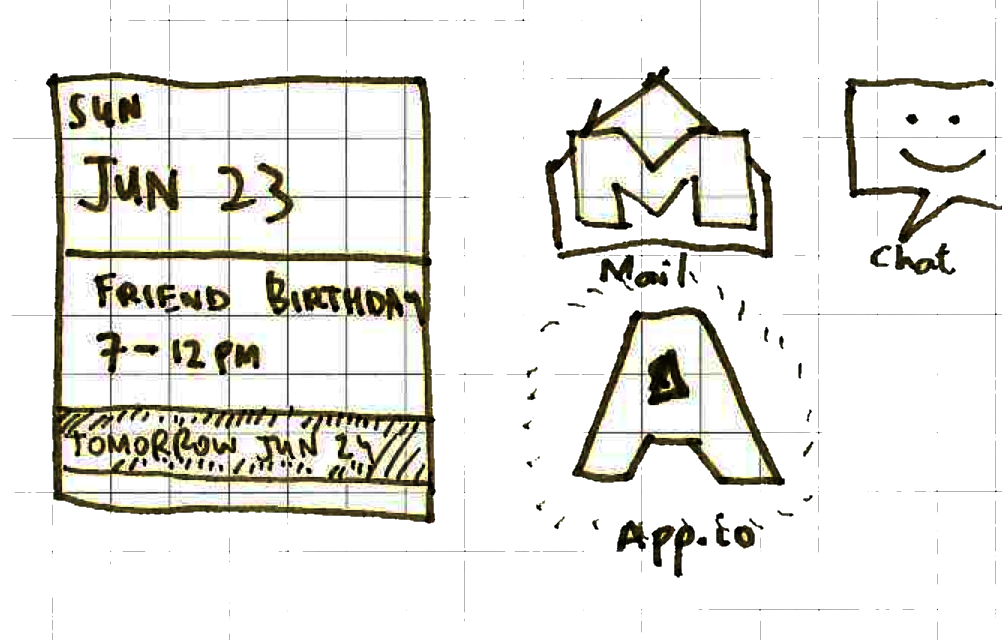 SUN
JUN 23
FRIEND BIRTHDAY
7-12 PM
TOMORROW JUN 24
M
Mail
Chat
A
App.to